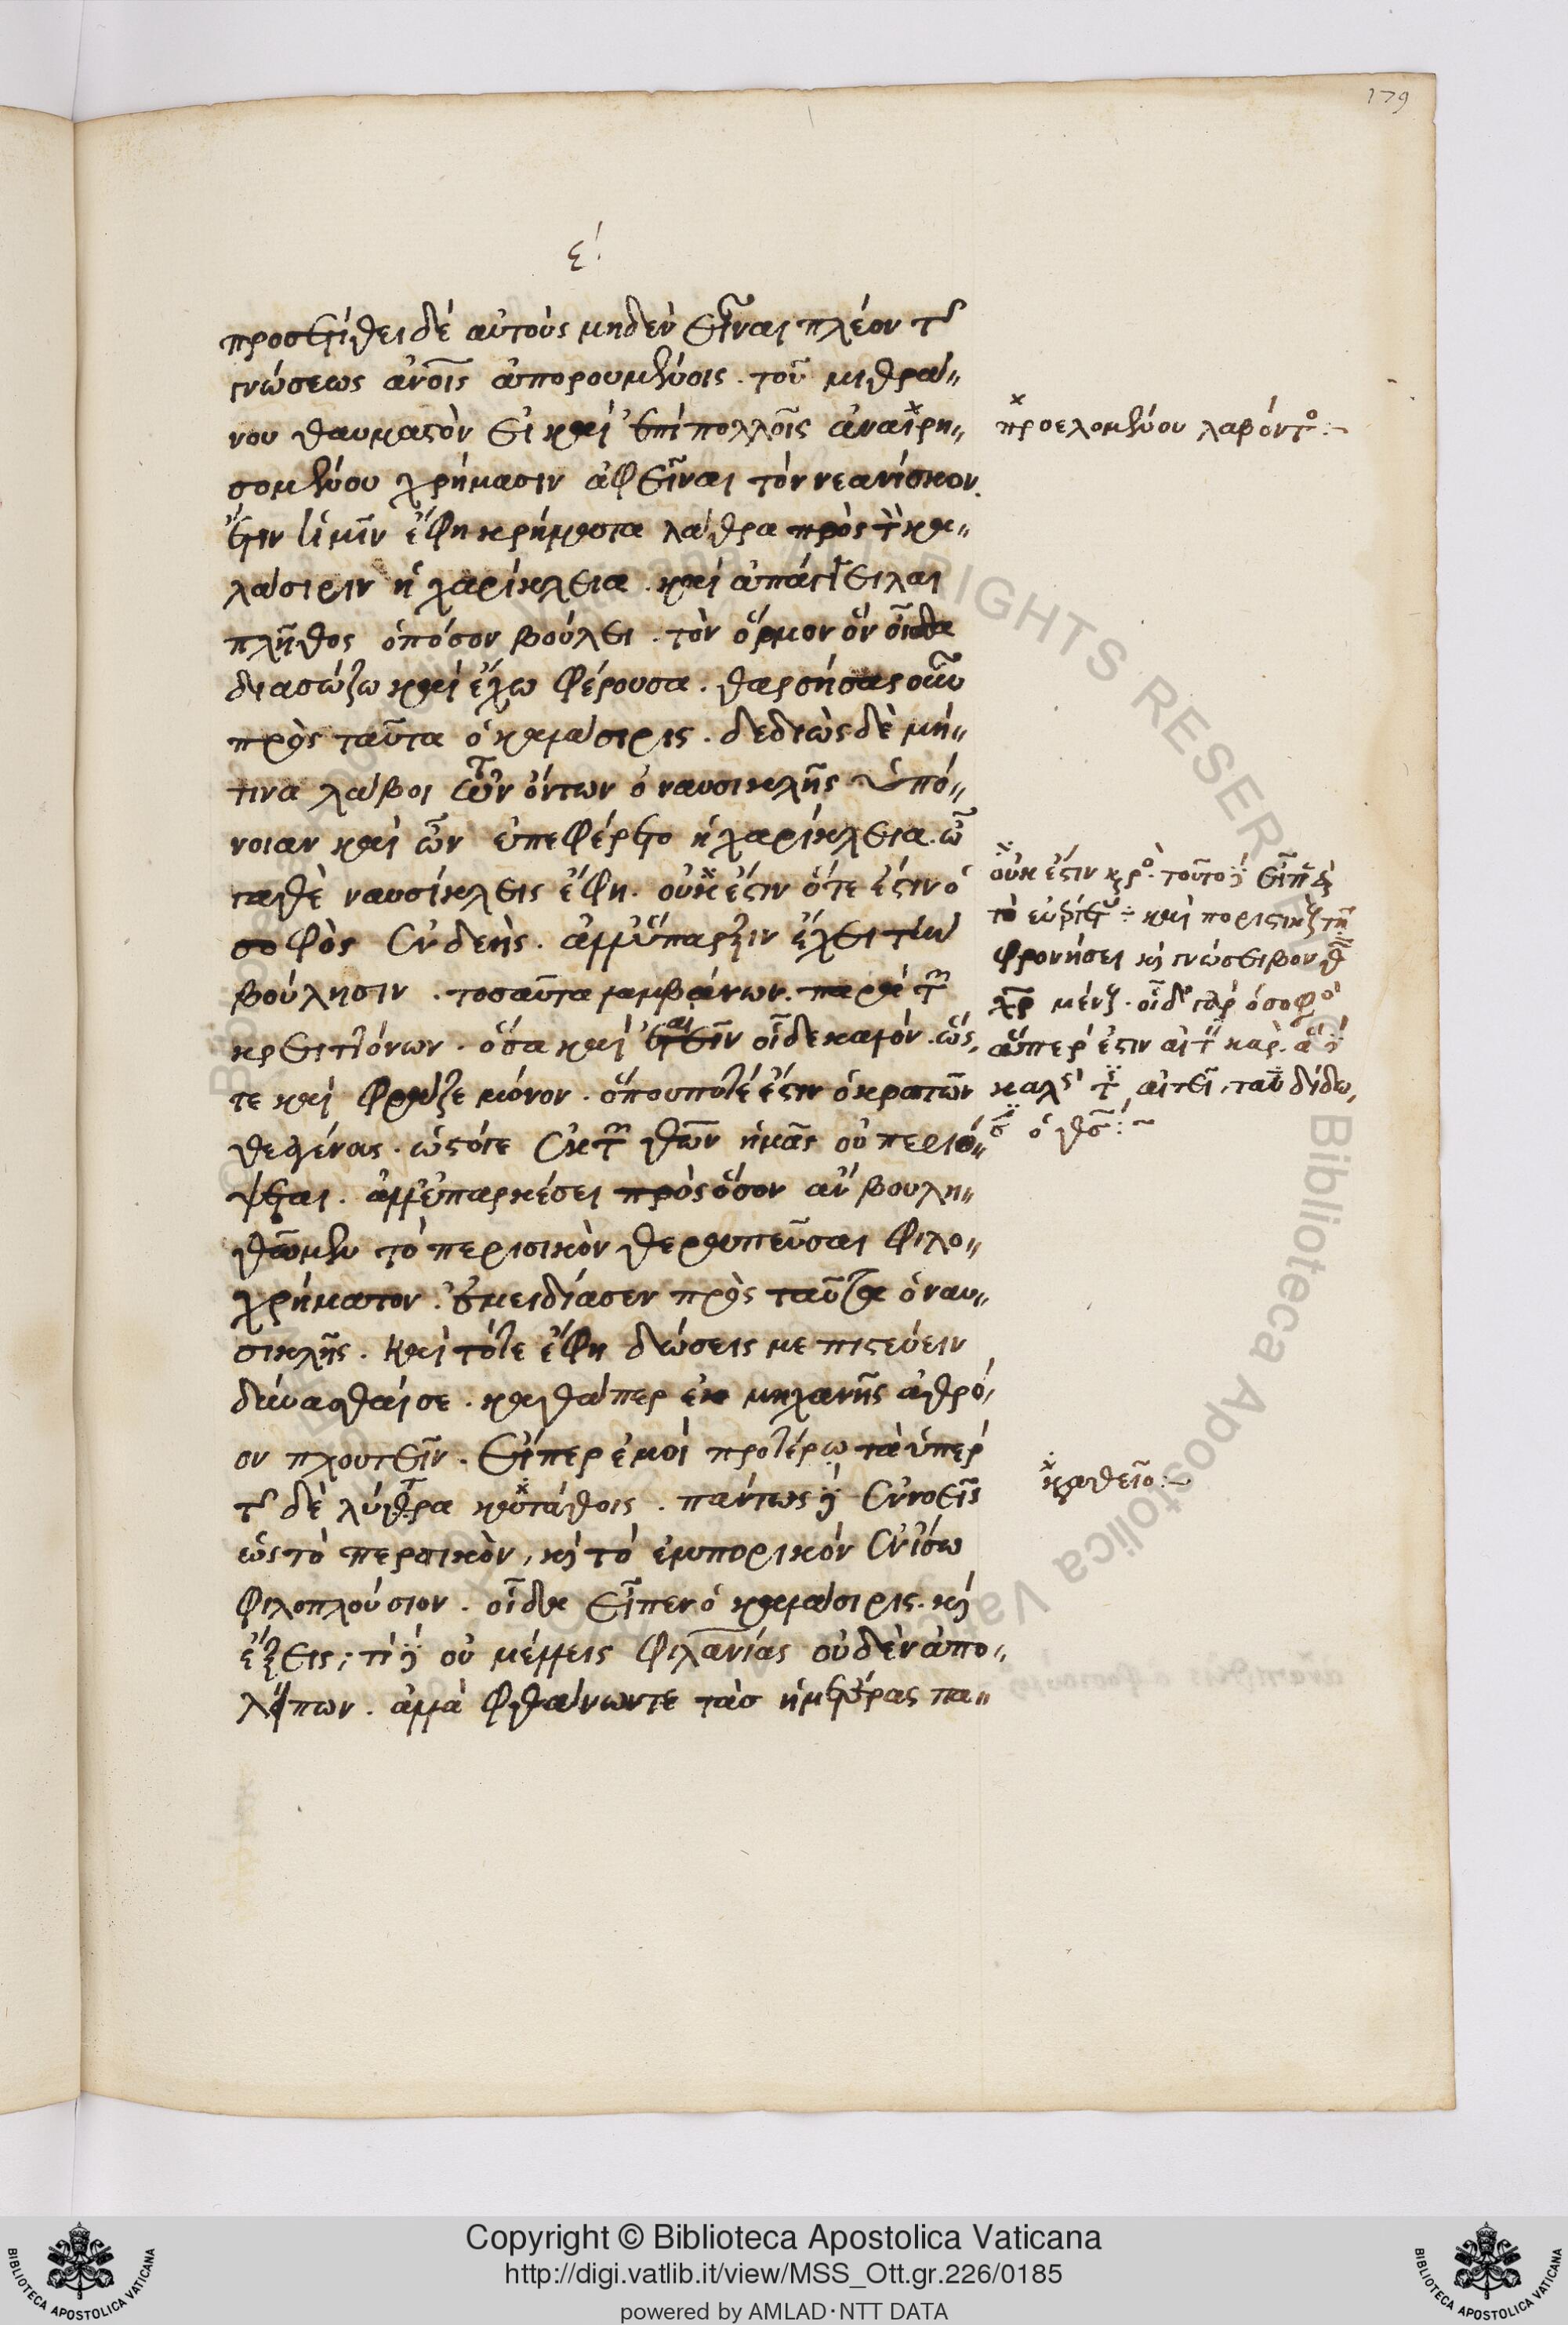 179
ε΄
προστίθει δέ αὐτοὺς μηδέν εἶναι πλέον τῆς
γνώσεως ἀνοις ἀπορουμένοις. τοῦ μιθρά〃
νου θαυμαστὸν εἰ καί ἐπί πολλοῖς ἀναἱρη〃
σομένου χρήμασιν ἀφεῖναι τόν νεανίσκον.
ἔστιν ἡμῖν ἔφη χρήματα λάθρα πρὸς τὸν κα〃
λάσιριν ἡ χαρίκλεια. καί
πλῆθος ὁπόσον βούλει. τὸν ὅρμον ὃν οἶσθα
διασώζω καί ἔχω φέρουσα. θαρσήσας οὖν
πρὸς ταῦτα ὁ καλάσιρις. δεδιὼς δὲ μή〃
τινα λάβοι τῶν ὄντων ὁ ναυσικλῆς ὑπό〃
νοιαν καί ὧν ἐπεφέρετο ἡ χαρίκλεια. ὦ
γαθὲ ναυσίκλεις ἔφη. οὐκ ἔστιν ὅτε ἐστιν ὁ
σοφὸς ἐνδεής. ἀλλ' ὕπαρξιν ἔχει τήν
βούλησιν. τοσαῦτα λαμβάνων. παρά τῶν
κρειττόνων. ὅσα καί αἰτεῖν οἶδε καλόν. ὥς,
τε καί φράζε μόνον. ὅπου ποτέ ἐστιν ὁ κρατῶν
θεαγένας. ὡς τότε ἐκ τῶν θεῶν ἡμᾶς οὐ περιό〃
ψεται. ἀλλ' ἐπαρκέσει πρὸς ὅσον ἄν βουλη〃
θῶμεν τὸ περσικὸν θεραπεῦσαι φιλο〃
χρήματον. ἐμειδίασεν πρὸς ταῦτα ὁ ναυ〃
σικλῆς. καί τότε ἔφη δώσεις με πιστεύειν
δύνασθαί σε. καθάπερ ἐκ μηχανῆς ἀθρό,
ον πλουτεῖν. εἴπερ ἐμοί προτέρω τὰ ὑπέρ
τῆς δὲ λύτρα καταθοῖς. πάντως
ὡς τὸ περσικὸν, κ τὸ ἐμπορικόν ἐν ἴσω
φιλοπλούσιον. οἶδα εἶπεν ὁ καλάσιρις. κ
ἕξεις; τί οὐ μέλλεις φιλανίας οὐδὲν ἀπο〃
λείπων. ἀλλὰ φθάνων τε τὰσ ἡμετέρας πα〃
προελομένου λαβόντος:~
οὐκ ἔστιν τοῦτο
τὸ
φρονήσει κ γνώσει
οἶδε γὰρ ὁ σοφός
ἅπερ ἐστιν
αἰτεῖ, ταῦτα δίδω,
ὁ θς:~
καθεῖο:~
Copyright © Biblioteca Apostolica Vaticana
http://digi.vatlib.it/view/MSS_Ott.gr.226/0185
powered by AMLAD·NTT DATA
BIBLIOTECA APOSTOLICA VATICANA
BIBLIOTECA APOSTOLICA VATICANA